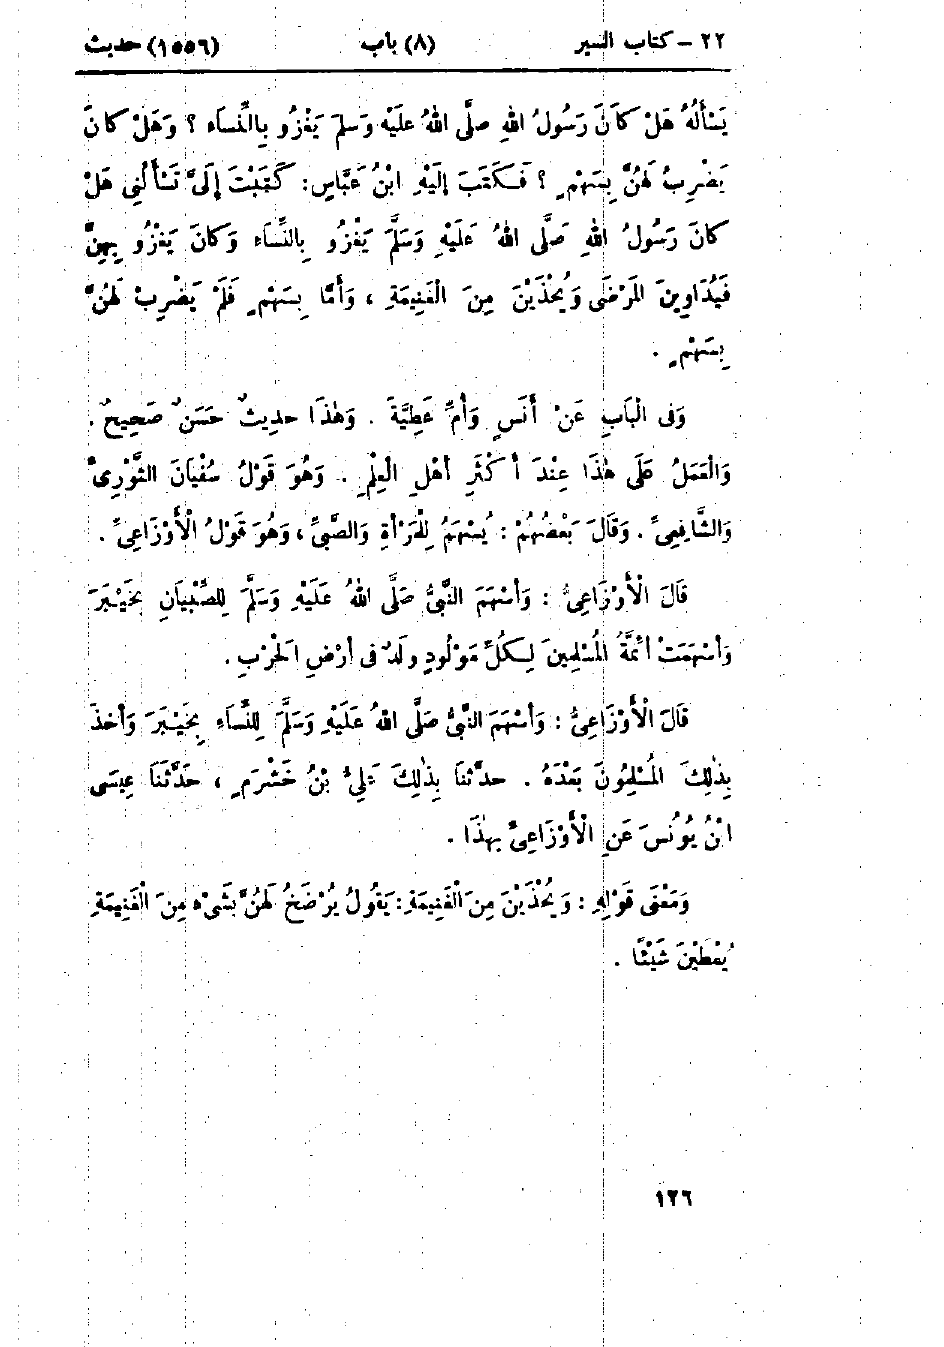 ٢٢ - كتاب السير (٨) باب (١٥٥٦) حديث
يَسْأَلُهُ هَلْ كَانَ رَسُولُ اللهِ صلَّى اللهُ علَيْهِ وَسلمَ يَغْزُو بِالنِّساَء ؟ وَهَلْ كانَ
يَضْرِبُ لَهُنَّ بِسَهْمٍ ؟ فَكَتَبَ إلَيْهِ ابْنُ عَبَّاسٍ : كَتَبْتَ إلَىَّ تَسْأَلُنِى هَلْ
كانَ رَسُولُ اللهِ صَلَّى اللهُ عَلَيْهِ وَسَلَّمَ يَغْزُو بِالنِّسَاء وَكانَ يَغْزُو بِهِنَّ
فَيُدَاوِينَ المَرْضَى وَيُحْذَيْنَ مِنَ الْغَنِيمَةِ ، وَأَمَّا بِسَهْمٍ فَلَمْ يَضْرِبْ لَهُنَّ
بِسَهْمٍ .
وَفى الْبَابِ عَنْ أَنَسٍ وَأُمِّ عَطِيَّةَ . وَهٰذَا حديثٌ حَسَنٌ صَحِيحٌ .
وَالْعَمَلُ عَلَى هٰذَا عِنْدَ أَكْثَرِ أهْلِ الْعِلْمِ . وَهُوَ قَوْلُ سُفْيَانَ الثَّوْرِىِّ
وَالشَّافِعِىِّ . وَقَالَ بَعْضُهُمْ : يُسْهَمُ لِلْمَرْأَةِ وَالصَّبِىِّ ، وَهُوَ قَوْلُ الْأَوْزَاعِىِّ .
قَالَ الْأَوْزَاعِىُّ : وَأَسْهَمَ النَّبىُّ صَلَّى اللهُ عَلَيْهِ وَسَلَّمَ لِلصِّبْيَانِ بِخَيْبَرَ
وَأسْهَمَتْ أئِمَّةُ المُسْلِمِينَ لِكُلِّ مَوْلُودٍ ولَدٌ فى أرْضِ الَحْرْبِ .
قَالَ الْأَوْزَاعِىُّ : وَأسْهَمَ النَّبىُّ صَلَّى اللهُ عَلَيْهِ وَسَلَّمَ لِلنِّسَاءِ بِخَيْبَرَ وَأخذَ
بِذٰلِكَ المُسْلِمُونَ بَعْدَهُ . حدثَنَا بِذٰلِكَ عَلِىُّ بْنُ خَشْرَمٍ ، حَدَّثَنَا عِيسَى
ابْنُ يُونُسَ عَنِ الْأَوْزَاعِىِّ بِهٰذَا .
وَمَعْنَى قَوْلِهِ : وَيُحْذَيْنَ مِنَ الْغَنِيمَةِ : يَقُولُ يُرْضَخُ لَهُنَّ بِشَىْءٍ مِنَ الْغَنِيمَةِ
يُعْطَيْنَ شَيْئًا .
١٢٦